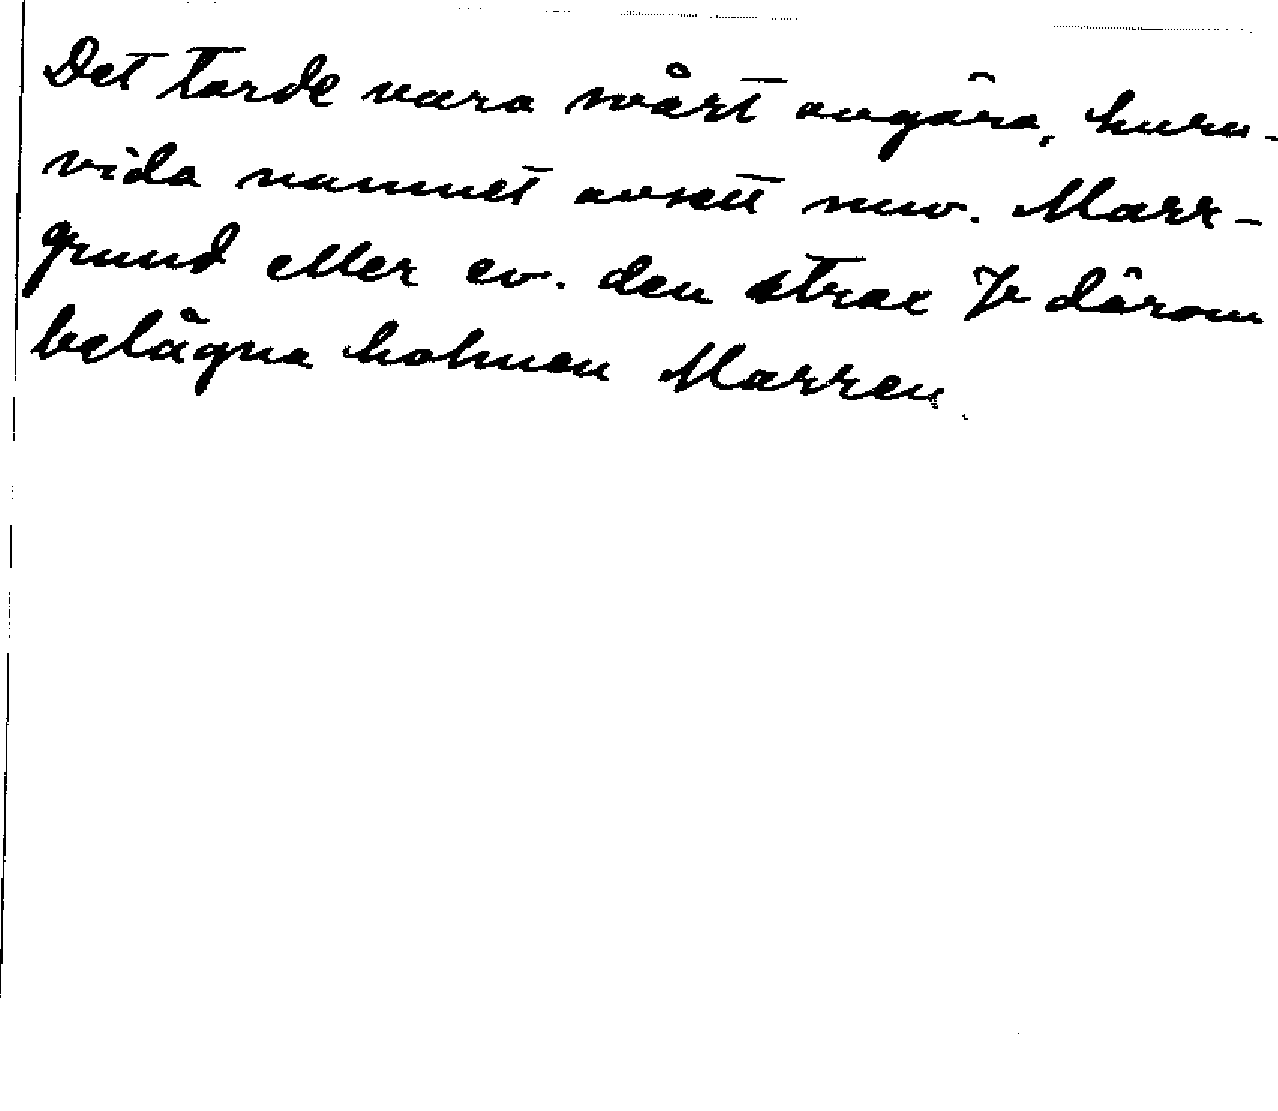 Det torde vara svårt avgöra, huru-
vida namnet avsett nuv. Marr-
grund eller ev. den strax därom
belägna holmen Marren.